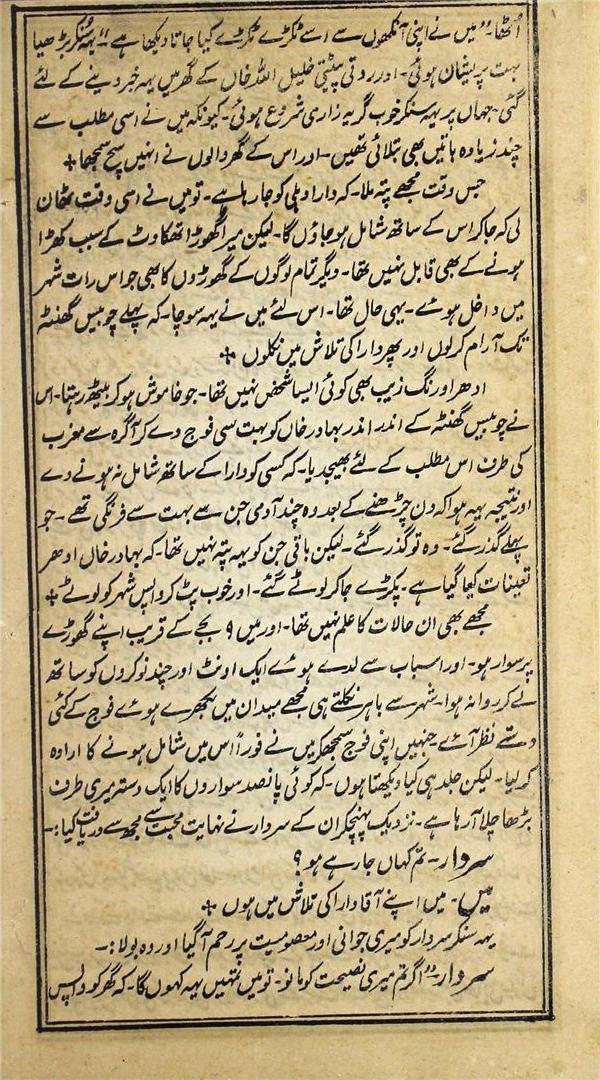 اُٹھا۔" میں نے اپنی آنکھوں سے اسے ٹکڑے ٹکڑے کیا جاتا دیکھا ہے"۔ یہہ سُنکر بڑھیا
بہت پریشان ہوئی۔ اور روتی پیٹتی خلیل اللہ خاں کے گھر میں یہہ خبر دینے کے لئے
گئی۔ جہاں پر یہہ سنکر خوب گریہ زاری شروع ہوئی۔ کیونکہ میں نے اسی مطلب سے
چند زیادہ باتیں بھی بتلائی تھیں۔ اور اس کے گھر والوں نے انہیں سچ سمجھا +
جس وقت مجھے پتہ ملا۔ کہ دارا دہلی کو جا رہا ہے۔ تو میں نے اسی وقت ٹھان
لی کہ جا کر اس کے ساتھ شامل ہو جاؤں گا۔ لیکن میرا گھوڑا تھکاوٹ کے سبب کھڑا
ہونے کے بھی قابل نہیں تھا۔ دیگر تمام لوگوں کے گھوڑوں کا بھی جو اس رات شہر
میں داخل ہوئے۔ یہی حال تھا۔ اس لئے میں نے یہہ سوچا۔ کہ پہلے چوبیس گھنٹہ
تک آرام کر لوں اور پھر دارا کی تلاش میں نکلوں +
ادھر اورنگ زیب بھی کوئی ایسا شخص نہیں تھا۔ جو خاموش ہو کر بیٹھ رہتا۔ اس
نے چوبیس گھنٹہ کے اندر اندر بہادر خاں کو بہت سی فوج دے کر آگرہ سے مغرب
کی طرف اس مطلب کے لئے بھیجدیا۔ کہ کسی کو دارا کے ساتھ شامل نہ ہونے دے
اور نتیجہ یہہ ہوا کہ دن چڑھنے کے بعد وہ چند آدمی جن سے بہت سے فرنگی تھے۔ جو
پہلے گذر گئے۔ وہ تو گذر گئے۔ لیکن باقی جن کو یہہ پتہ نہیں تھا۔ کہ بہادر خاں ادھر
تعینات کیا گیا ہے۔ پکڑے جا کر لوٹے گئے۔ اور خوب پٹ کر واپس شہر کو لوٹے +
مجھے بھی ان حالات کا علم نہیں تھا۔ اور میں ۹ بجے کے قریب اپنے گھوڑے
پر سوار ہو۔ اور اسباب سے لدے ہوئے ایک اونٹ اور چند نوکروں کو ساتھ
لے کر روانہ ہوا۔ شہر سے باہر نکلتے ہی مجھے میدان میں بکھرے ہوئے فوج کے کئی
دستے نظر آئے۔ جنہیں اپنی فوج سمجھکر میں نے فوراً اس میں شامل ہونے کا ارادہ
کر لیا۔ لیکن جلد ہی کیا دیکھتا ہوں۔ کہ کوئی پانصد سواروں کا ایک دستہ میری طرف
بڑھا چلا آ رہا ہے۔ نزدیک پہنچکر ان کے سردار نے نہایت محبت سے مجھ سے دریافت کیا:۔
سردار۔ تم کہاں جا رہے ہو؟
میں۔ میں اپنے آقا دارا کی تلاش میں ہوں +
یہہ سنکر سردار کو میری جوانی اور معصومیت پر رحم آ گیا اور وہ بولا:۔
سردار۔ "اگر تم میری نصیحت کو مانو۔ تو میں تمہیں یہہ کہوں گا۔ کہ گھر کو واپس